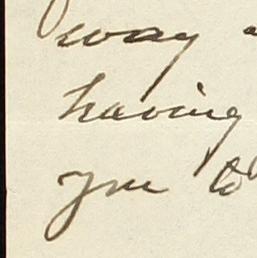 way
having
you to